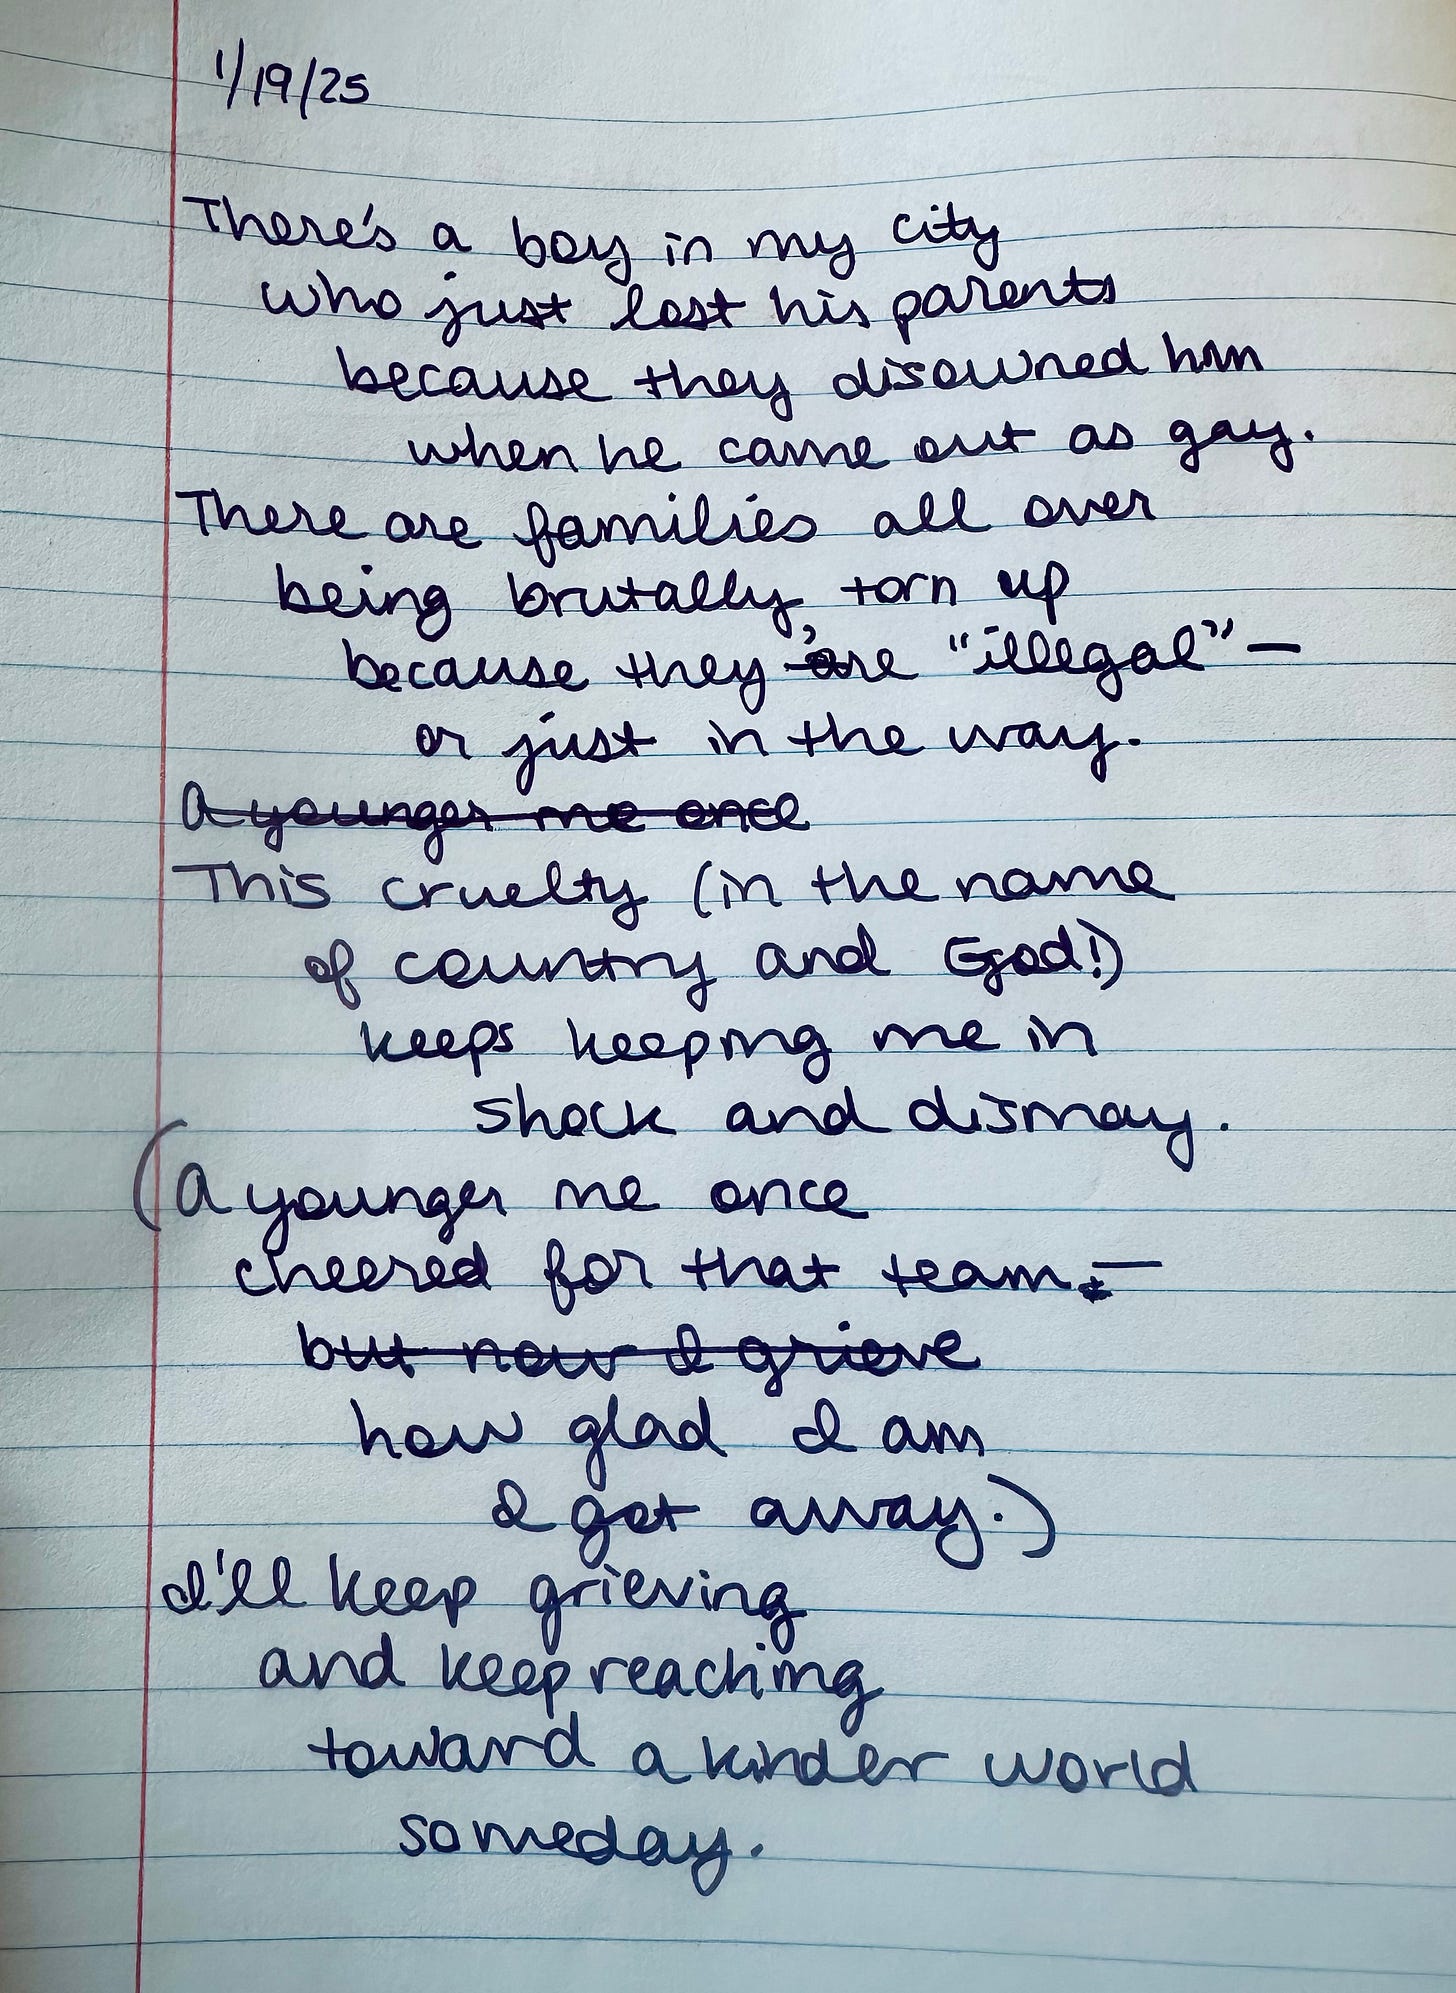 1/19/25
There's a boy in my city
who just lost his parents
because they disowned him
when he came out as gay.
There are families all over
being brutally torn up
because they're "illegal" —
or just in the way.
A younger me once
This cruelty (in the name
of country and God!)
keeps keeping me in
shock and dismay.
(A younger me once
cheered for that team —
but now I grieve
how glad I am
I got away.)
I'll keep grieving
and keep reaching
toward a kinder world
someday.